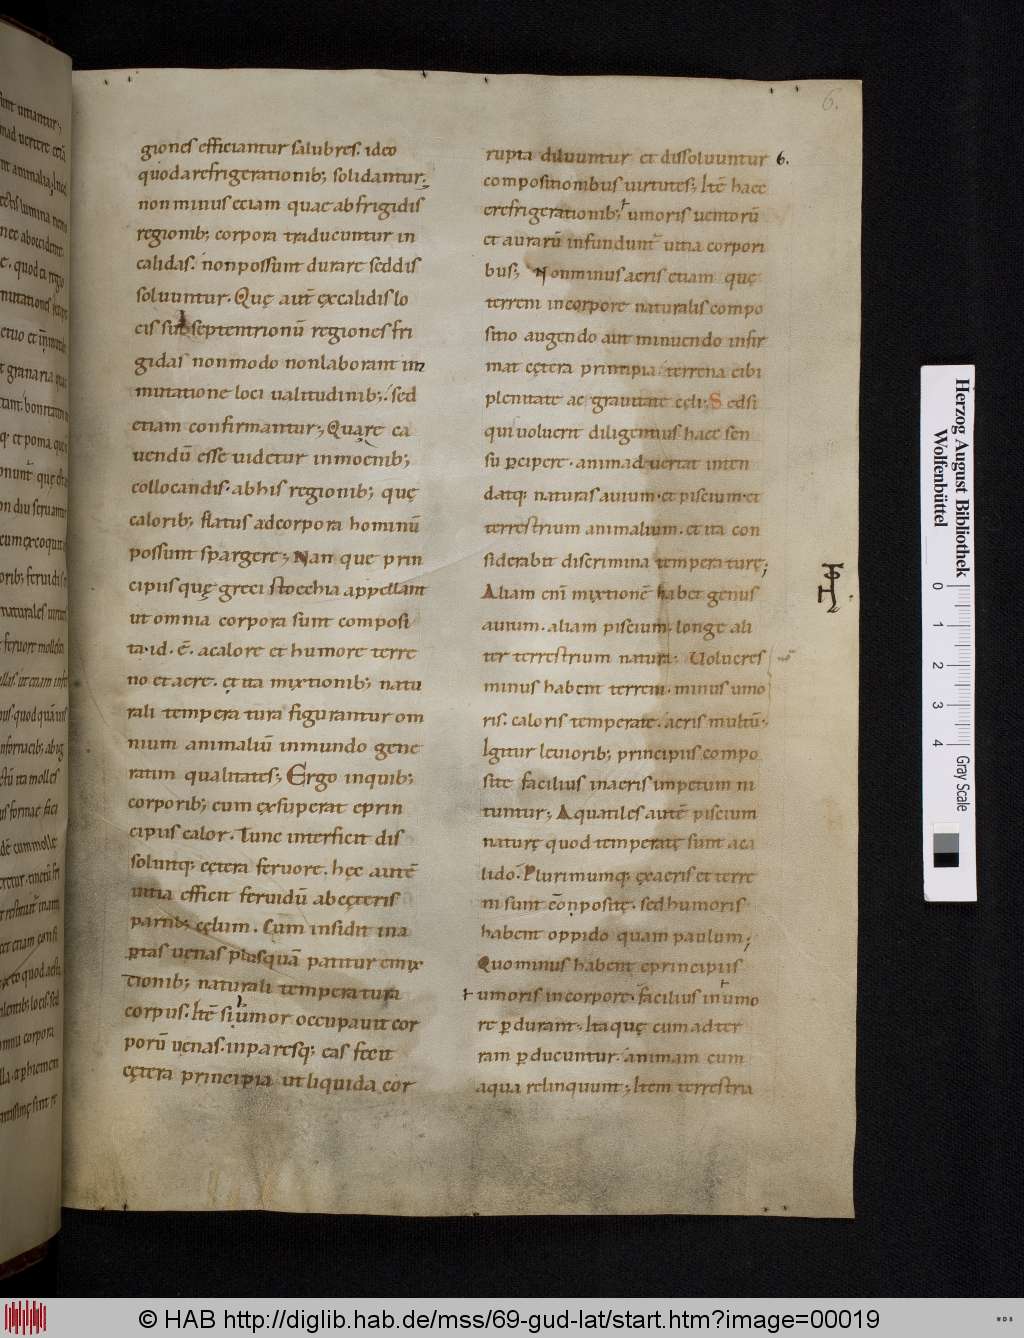 6.
giones efficiantur salubres. ideo
quodarefrigerationib; solidantur.;
non minus etiam quae ab frigidis
regionib; corpora traducuntur in
calidas. non possunt durare sed dis
soluuntur. Quę aut̄ ęx calidis lo
cis sub septentrionū regiones fri
gidas non modo non laborant im
mutatione loci ualitudinib;. sed
etiam confirmantur; Quare ca
uendū esse uidetur in moenib;
collocandis. ab his regionib; quę
calorib; flatus ad corpora hominū
possunt spargere; Nan que prin
cipiis quę greci stoechia appellant
ut omnia corpora sunt composi
ta. id. ē. a calore et humore terre
no et aere. ęt ita mixtionib; natu
rali temperatura figurantur om
nium animaliū in mundo gene
ratim qualitates; Ergo in quib;
corporib; cum ęxsuperat e prin
cipiis calor. Tunc interficit dis
soluitq; cętera feruore. hęc autē
uitia efficit feruidū ab ęęteris
partib; cęlum. Cūm insidit in a
ꝑtas uenas plusquā patitur e mix
tionib; naturali temperatura
corpus. Itē si umor occupauit cor
porū uenas. inparesq; eas fecit
cętera principia ut liquida cor
rupta diluuntur et dissoluuntur 6.
compositionibus uirtutes; Itē haec
e refrigerationib; umoris uentorū
et aurarū infundunt̄ uitia corpori
bus; Non minus aeris etiam quę
terreni in corpore naturalis compo
sitio augendo aut minuendo infir
mat cętera principia. terrena cibi
plenitate ac grauitate cęli; Sed si
qui uoluerit diligentius haec sen
su ꝑcipere. animaduertat inten
datq; naturas auium. et piscium. et
terrestrium animalium. et ita con
siderabit discrimina temperaturę;
Aliam enī mixtionē habet genus
auium. aliam piscium. longe ali
ter terrestrium natura. Uolucres
minus habent terreni. minus umo
ris. caloris temperate. aeris multū.
Igitur leuiorib; principiis compo
site facilius in aeris impetum ni
tuntur; Aquatiles autē piscium
naturę quod temperatę sunt a ca
lido. Plurimumq; ęx aeris et terre
ni sunt cōnpositę. sed humoris
habent oppido quam paulum;
Quo minus habent e principiis
umoris in corpore. facilius in umo
re ꝑdurant. Itaquę cum ad ter
ram ꝑducuntur. animam cum
aqua relinquunt; Item terrestria
Herzog August Bibliothek
Wolfenbüttel
0 1 2 3 4
Gray Scale
© HAB http://diglib.hab.de/mss/69-gud-lat/start.htm?image=00019